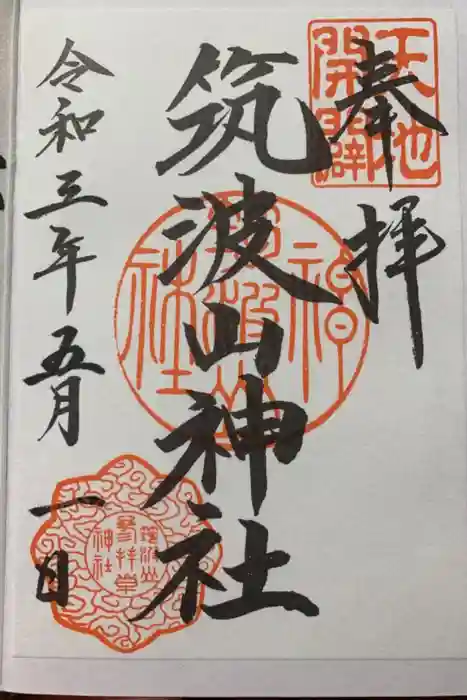 奉拝
天地
開闢
筑波山神社
筑波山
神社
筑波山
参拝堂
神社
令和三年五月一日